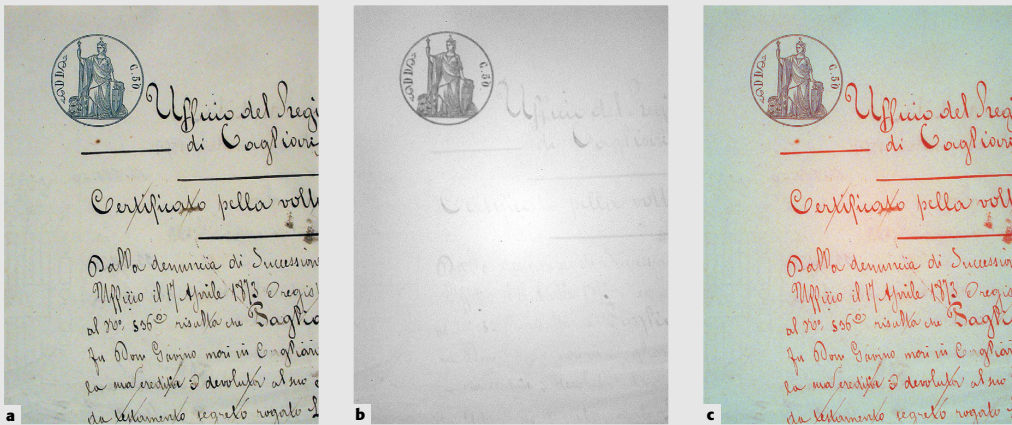 C. 50
Ufficio del Regi
di Cagliari
Certificato pella volt
Dalla denuncia di Succession
Ufficio il 17 Aprile 1873 regis
al No. 536 risulta che Pagli
fu Dom Gavino mori in Cagliari
la sua eredità è devoluta al suo
da testamento segreto rogato
a
C. 50
Ufficio del Regi
di Cagliari
b
C. 50
Ufficio del Regi
di Cagliari
Certificato pella volt
Dalla denuncia di Succession
Ufficio il 17 Aprile 1873 regis
al No. 536 risulta che Pagli
fu Dom Gavino mori in Cagliari
la sua eredità è devoluta al suo
da testamento segreto rogato
c